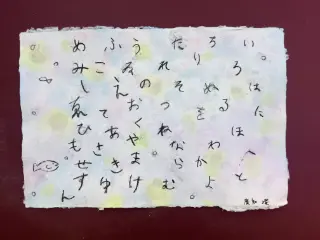 いろはにほへと
ちりぬるをわかよ
たれそつねならむ
うゐのおくやまけ
ふこえてあさきゆ
めみしゑひもせすん